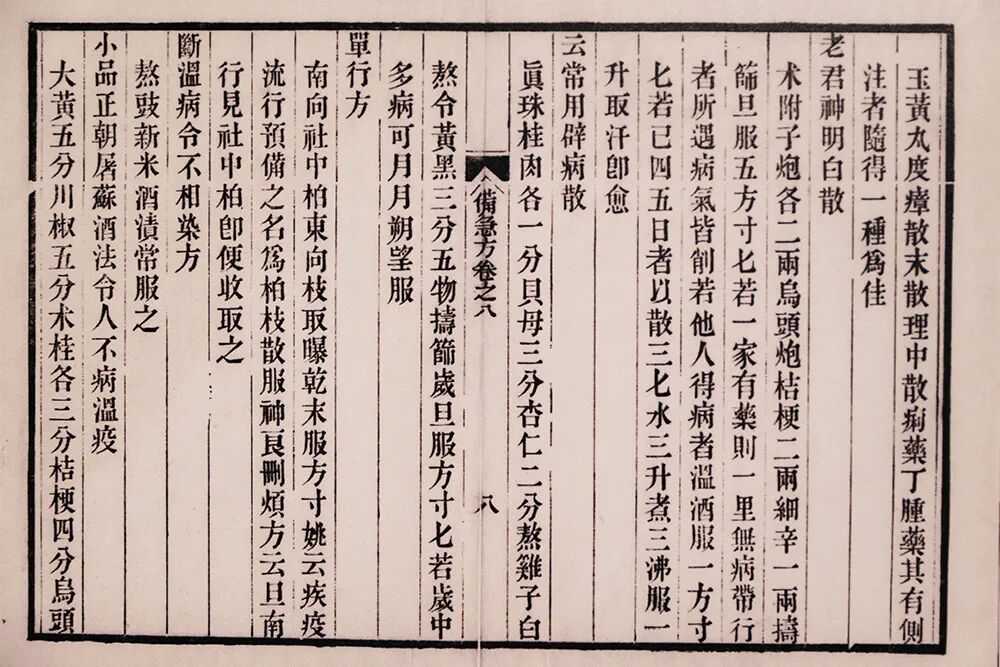 玉黃丸度瘴散末散理中散痢藥丁腫藥其有側
注者隨得一種爲佳
老君神明白散
术附子炮各二兩烏頭炮桔梗二兩細辛一兩擣
篩旦服五方寸匕若一家有藥則一里無病帶行
者所遇病氣皆削若他人得病者溫酒服一方寸
匕若已四五日者以散三匕水三升煮三沸服一
升取汗卽愈
云常用辟病散
眞珠桂肉各一分貝母三分杏仁二分熬雞子白
備急方卷之八
八
熬令黃黑三分五物擣篩歲旦服方寸匕若歲中
多病可月月朔望服
單行方
南向社中柏東向枝取曝乾末服方寸姚云疾疫
流行預備之名爲柏枝散服神良刪煩方云旦南
行見社中柏卽便收取之
斷溫病令不相染方
熬豉新米酒漬常服之
小品正朝屠蘇酒法令人不病溫疫
大黃五分川椒五分术桂各三分桔梗四分烏頭